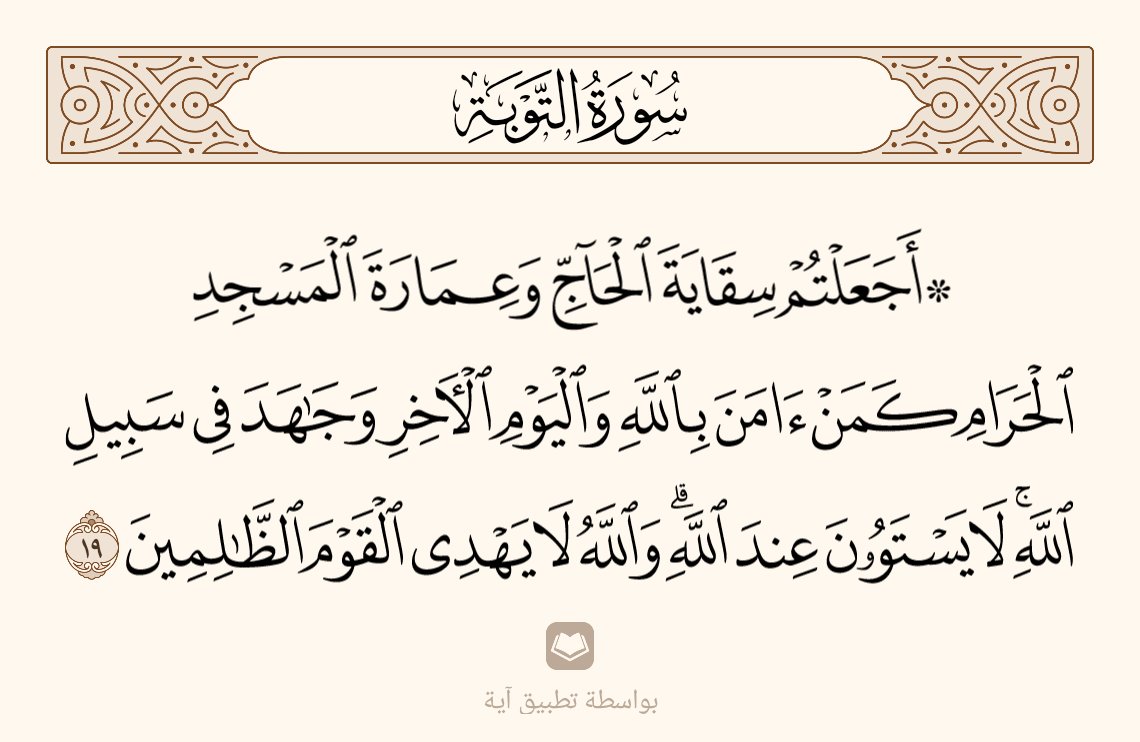 سُورَةُ التَّوْبَةِ
۞ أَجَعَلْتُمْ سِقَايَةَ ٱلْحَآجِّ وَعِمَارَةَ ٱلْمَسْجِدِ
ٱلْحَرَامِ كَمَنْ ءَامَنَ بِٱللَّهِ وَٱلْيَوْمِ ٱلْأَخِرِ وَجَٰهَدَ فِى سَبِيلِ
ٱللَّهِۚ لَا يَسْتَوُۥنَ عِندَ ٱللَّهِۗ وَٱللَّهُ لَا يَهْدِى ٱلْقَوْمَ ٱلظَّٰلِمِينَ ١٩
بواسطة تطبيق آية